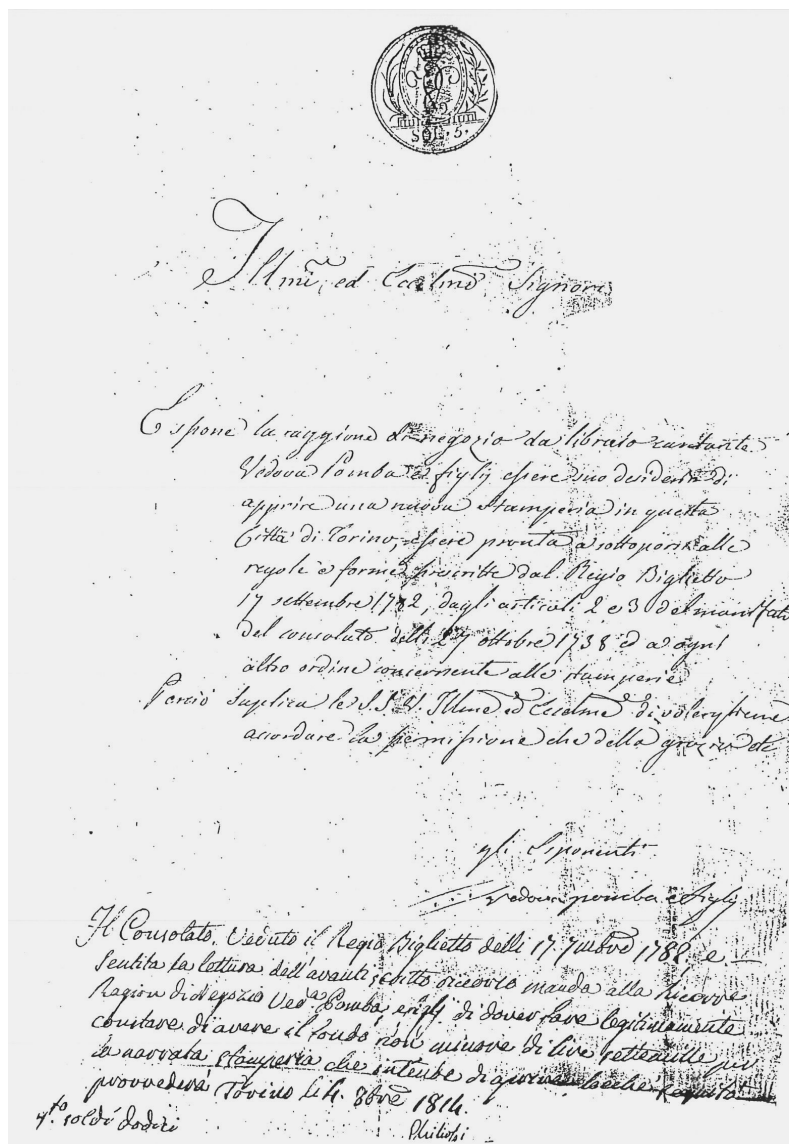 SOL. 5.
Illmi, ed Eccelmi Signori
Espone la raggione di negozio da libraio cantante
Vedova Pomba e figlij essere suo desiderio di
apprire una nuova stamperia in questa
Città di Torino, essere pronta a sottoporsi alle
regole e forme prescritte dal Regio Biglietto
17 settembre 1782, dagli articoli 2 e 3 del manifesto
del consolato delli 27 ottobre 1738 ed a ogni
altro ordine concernente alle stamperie
Perciò suplica le S.S. V. Illme ed Eccelme di volergliene
accordare la permissione che della grazia etc
gli Esponenti
vedova pomba e figlj
Il Consolato. Veduto il Regio Biglietto delli 17. 7mbre 1782, e
sentita la lettura dell'avanti scritto ricorso manda alla Ricorre
Ragion di Negozio Veda Pomba, e figlj di dover fare legitimamente
constare di avere il fondo non minore di lire settemille per
la narrata stamperia che intende di
provvederà Torino li 4. 8bre 1814.
soldi dodici